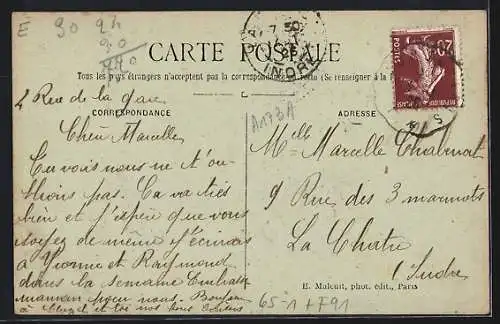 E 90 24
90
CARTE POSTALE
INDRE
Tous les pays étrangers n'acceptent pas la correspondance au recto (Se renseigner à la
POSTES
2 Rue de la gare
CORRESPONDANCE
A173A
ADRESSE
Chère Marcelle
Mlle Marcelle Chabenat
Tu vois nous ne t'ou-
blions pas. Ca va très
bien et j'espère que vous
soyez de même j'écrirais
à Yvonne et Raymond
dans la semaine Embrasse
maman pour nous. Bonjour
à et toi nos
9 Rue des 3 marmots
La Chatre
Indre
E. Malcuit, phot. édit., Paris
65-1 + 791